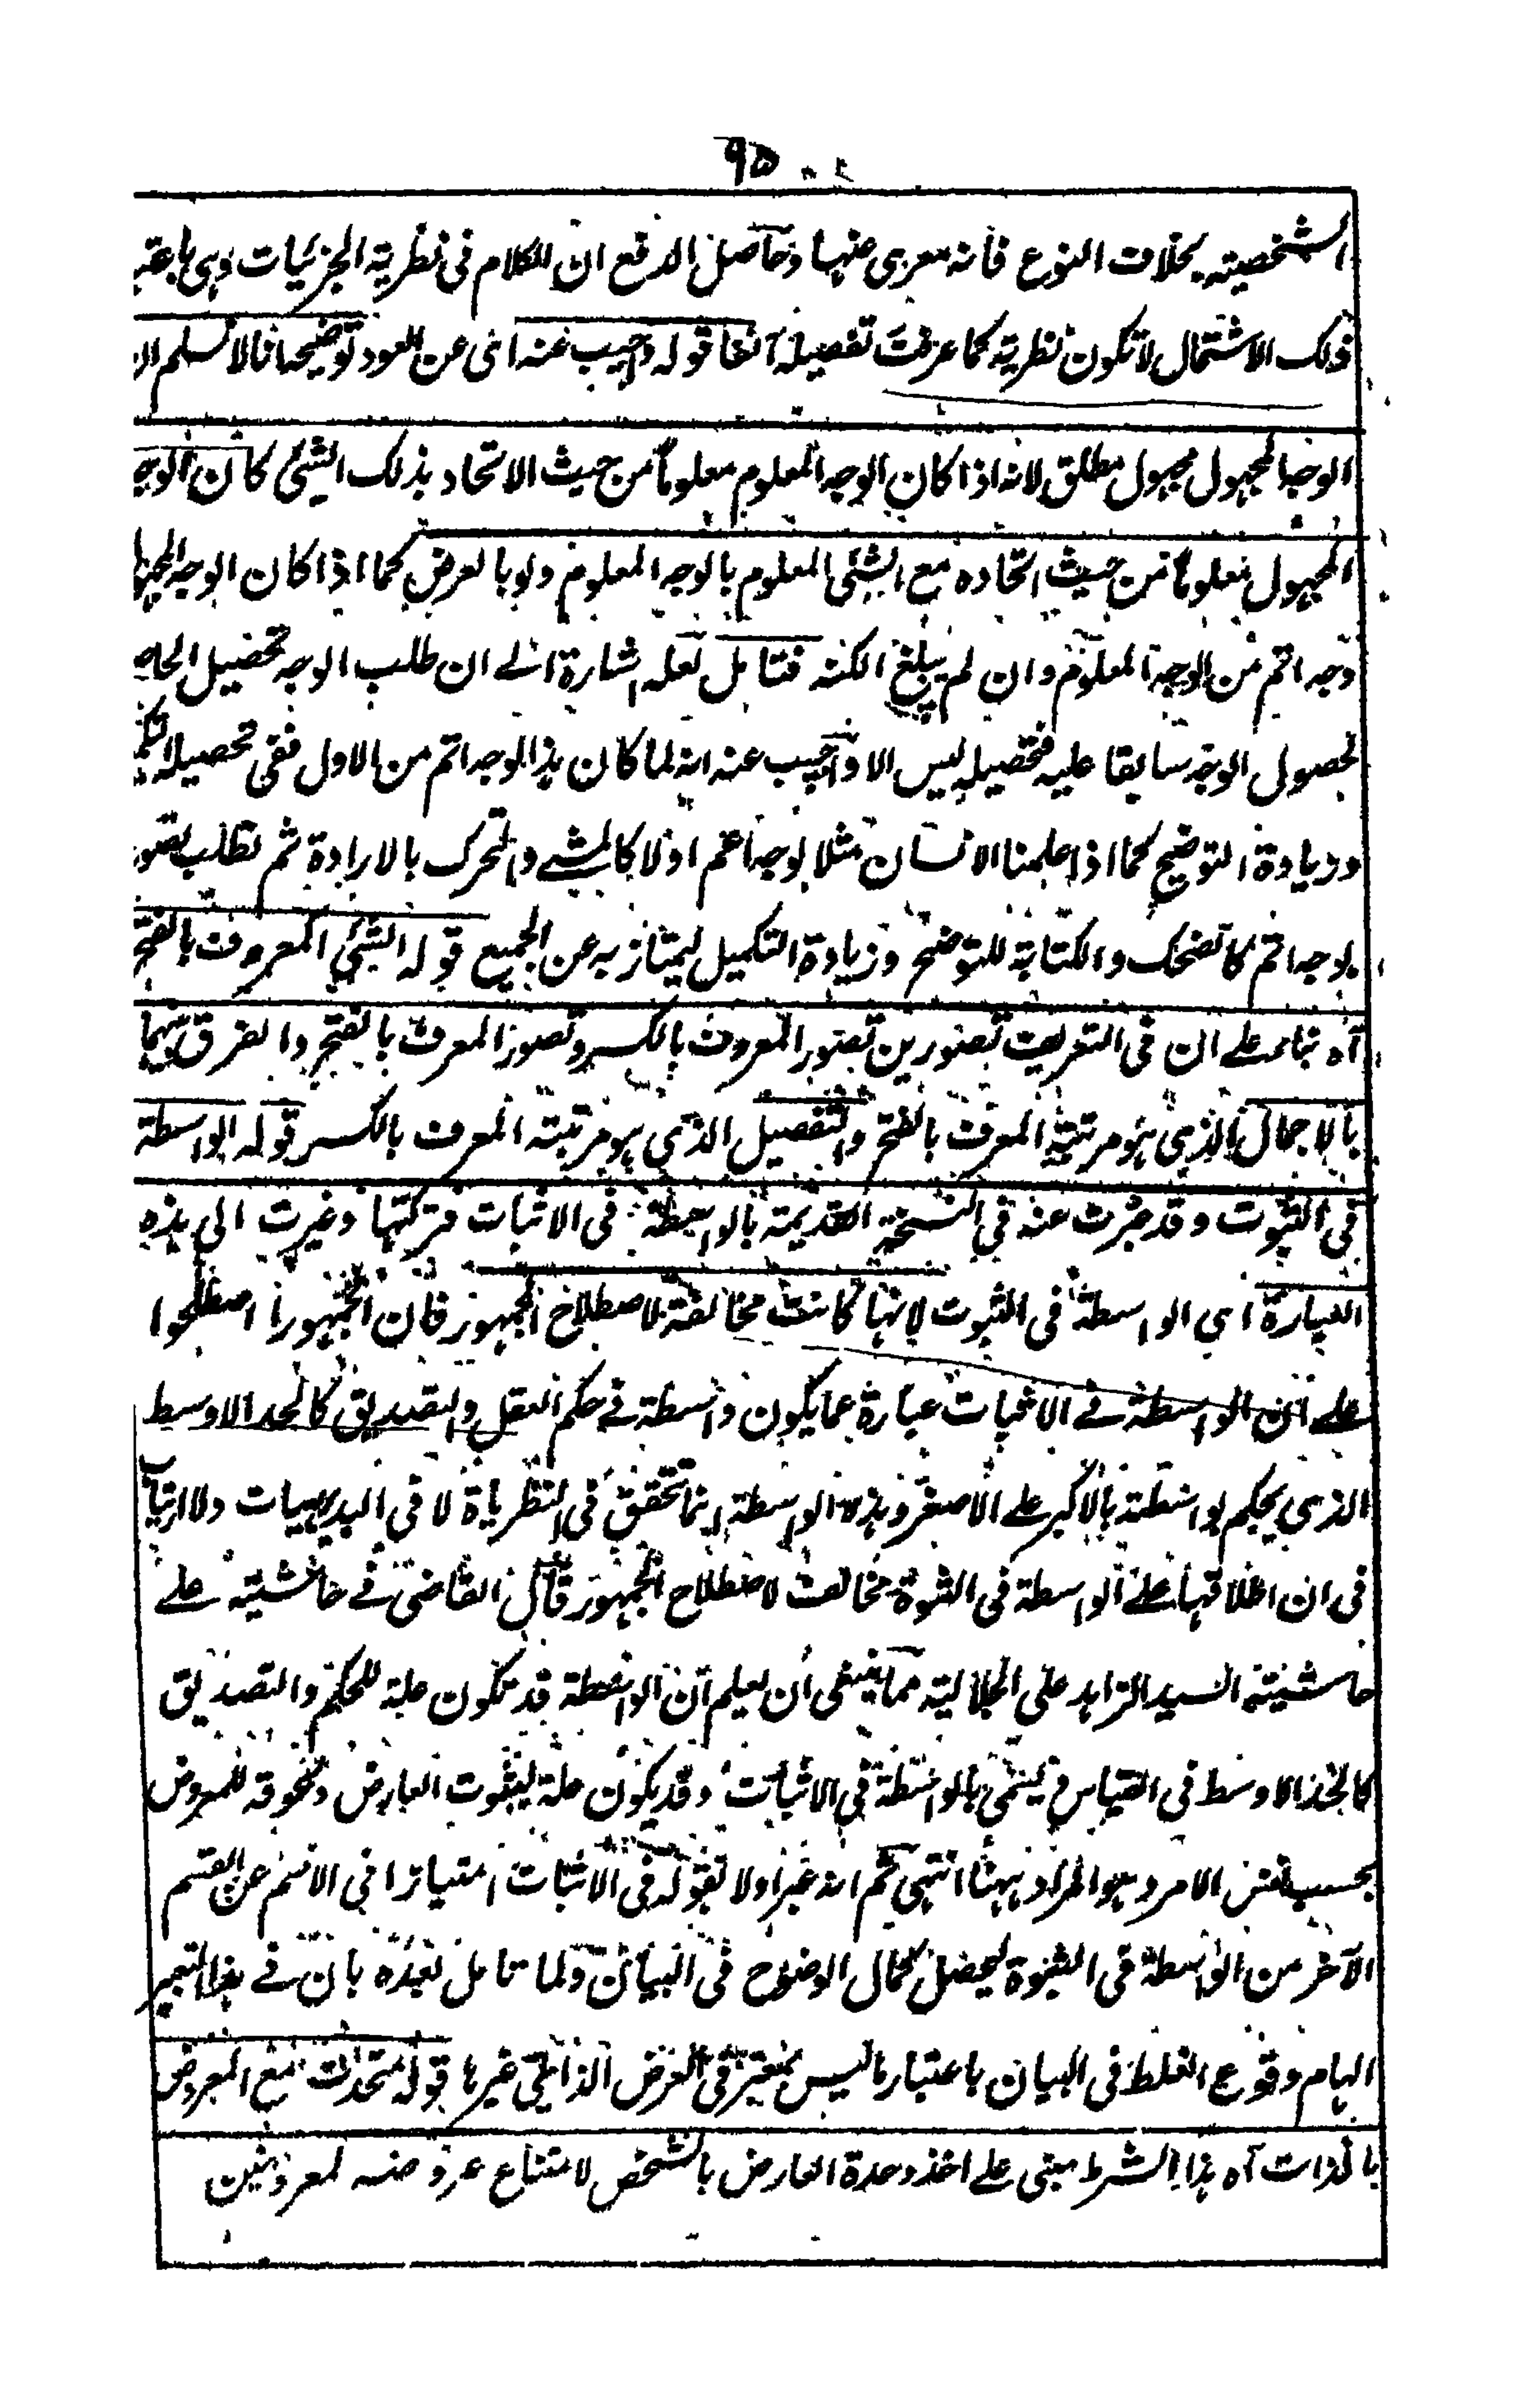 ٩٥
الشخصية بخلاف النوع فانه معرى عنها وحاصل الدفع ان الكلام فى نظرية الجزئيات وهى باعتبا
ذلك الاشتمال لا تكون نظرية كما عرفت تفصيله آنفا قوله واجيب عنه اى عن العود توضيحه انا لا نسلم ان
الوجه المجهول مجهول مطلق لانه اذا كان الوجه المعلوم معلوما من حيث الاتحاد بذلك الشئ كان الوجه
المجهول معلوما من حيث اتحاده مع الشئ المعلوم بالوجه المعلوم ولو بالعرض كما اذا كان الوجه المجهول
وجه اتم من الوجه المعلوم وان لم يبلغ الكنه فتامل لعله اشارة الے ان طلب الوجه تحصيل الحاصل
لحصول الوجه سابقا عليه فتحصيله ليس الا واجيب عنه انه لما كان هذا الوجه اتم من الاول ففى تحصيله
وزيادة التوضيح كما اذا علمنا الانسان مثلا بوجه اعم اولا كالمشے والتحرك بالارادة ثم نطلب تصور
بوجه اتم كالضحك والكتابة للتوضح وزيادة التكميل ليمتاز به عن الجميع قوله الشئ المعروف بالفتح
آه بناء علے ان فى التعريف تصورين تصور المعرف بالكسر وتصور المعرف بالفتح والفرق بينهما
بالاجمال الذى هو مرتبة المعرف بالفتح والتفصيل الذى هو مرتبة المعرف بالكسر قوله الواسطة
فى الثبوت وقد عبرت عنه فى النسخة القديمة بالواسطة فى الاثبات فتركتها وغيرت الى هذه
العبارة اى الواسطة فى الثبوت لانها كانت مخالفة لاصطلاح الجمهور فان الجمهور اصطلحوا
علے ان الواسطة فے الاثبات عبارة عما يكون واسطة فے حكم العقل والتصديق كالحد الاوسط
الذى يحكم بواسطته بالاكبر على الاصغر وهذه الواسطة انما تحقق فى النظرياة لا فى البديهيات ولا ارتياب
فى ان اطلاقها علے الواسطة فى الثبوة مخالف لاصطلاح الجمهور قال القاضى فے حاشيته علے
حاشية السيد الزاهد على الجلالية مما ينبغى ان يعلم ان الواسطة قد تكون علة للحكم والتصديق
كالحد الاوسط فى القياس ويسمى بالواسطة فى الاثبات وقد يكون علة لثبوت العارض ولحوقه للمعروض
بحسب نفس الامر وهو المراد ههنا انتهى ثم انه عبر اولا بقوله فى الاثبات امتيازا فى الاسم عن القسم
الآخر من الواسطة فى الثبوة ليحصل كمال الوضوح فى البيان ولما تامل بعده بان فے هذا التعبير
ايهام وقوع الغلط فى البيان باعتبار ما ليس بمعتبر فى العرض الذاتى غيرها قوله متحدة مع المعروض
بالذات آه هذا الشرط مبنى علے اخذ وحدة العارض بالشخص لامتناع عروضه لمعروضين